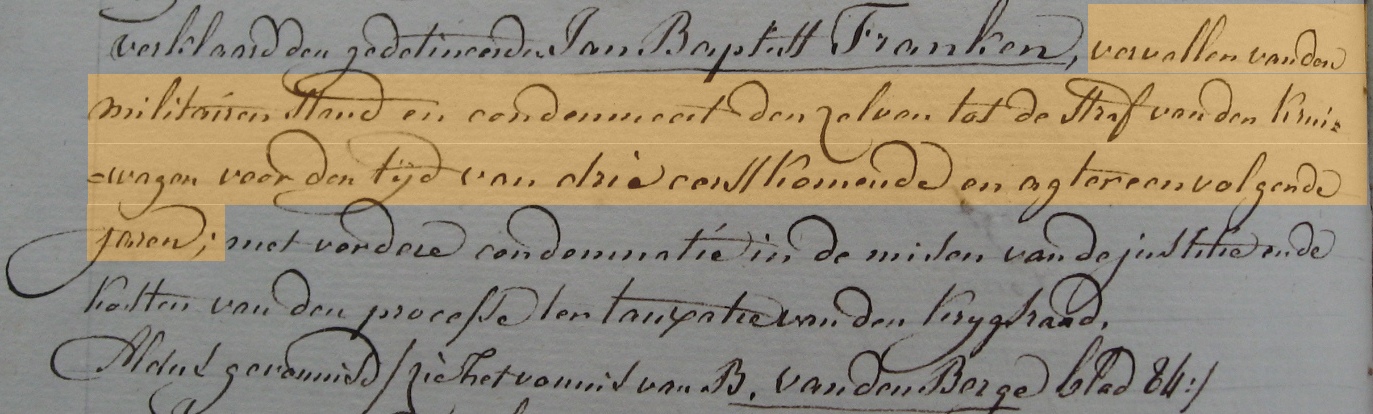 verklaard den gedetineerden Jan Baptist Franken, vervallen van den
militairen stand en condemneert den zelven tot de straf van den krui=
=wagen voor den tijd van drie eerstkomende en agtereenvolgende
jaren; met verdere condemnatie in de misen van de justitie ende
kosten van den processe ter tauxatie van den krygsraad.
Aldus gevonnisd /zie het vonnis van B. van den Berge blad 84:/